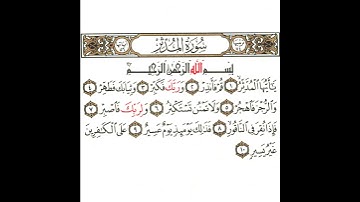 سُورَةُ المُدَّثِّرِ
بِسْمِ اللَّهِ الرَّحْمَٰنِ الرَّحِيمِ
يَٰٓأَيُّهَا ٱلْمُدَّثِّرُ ١ قُمْ فَأَنذِرْ ٢ وَرَبَّكَ فَكَبِّرْ ٣ وَثِيَابَكَ فَطَهِّرْ ٤
وَٱلرُّجْزَ فَٱهْجُرْ ٥ وَلَا تَمْنُن تَسْتَكْثِرُ ٦ وَلِرَبِّكَ فَٱصْبِرْ ٧
فَإِذَا نُقِرَ فِى ٱلنَّاقُورِ ٨ فَذَٰلِكَ يَوْمَئِذٍ يَوْمٌ عَسِيرٌ ٩ عَلَى ٱلْكَٰفِرِينَ
غَيْرُ يَسِيرٍ ١٠